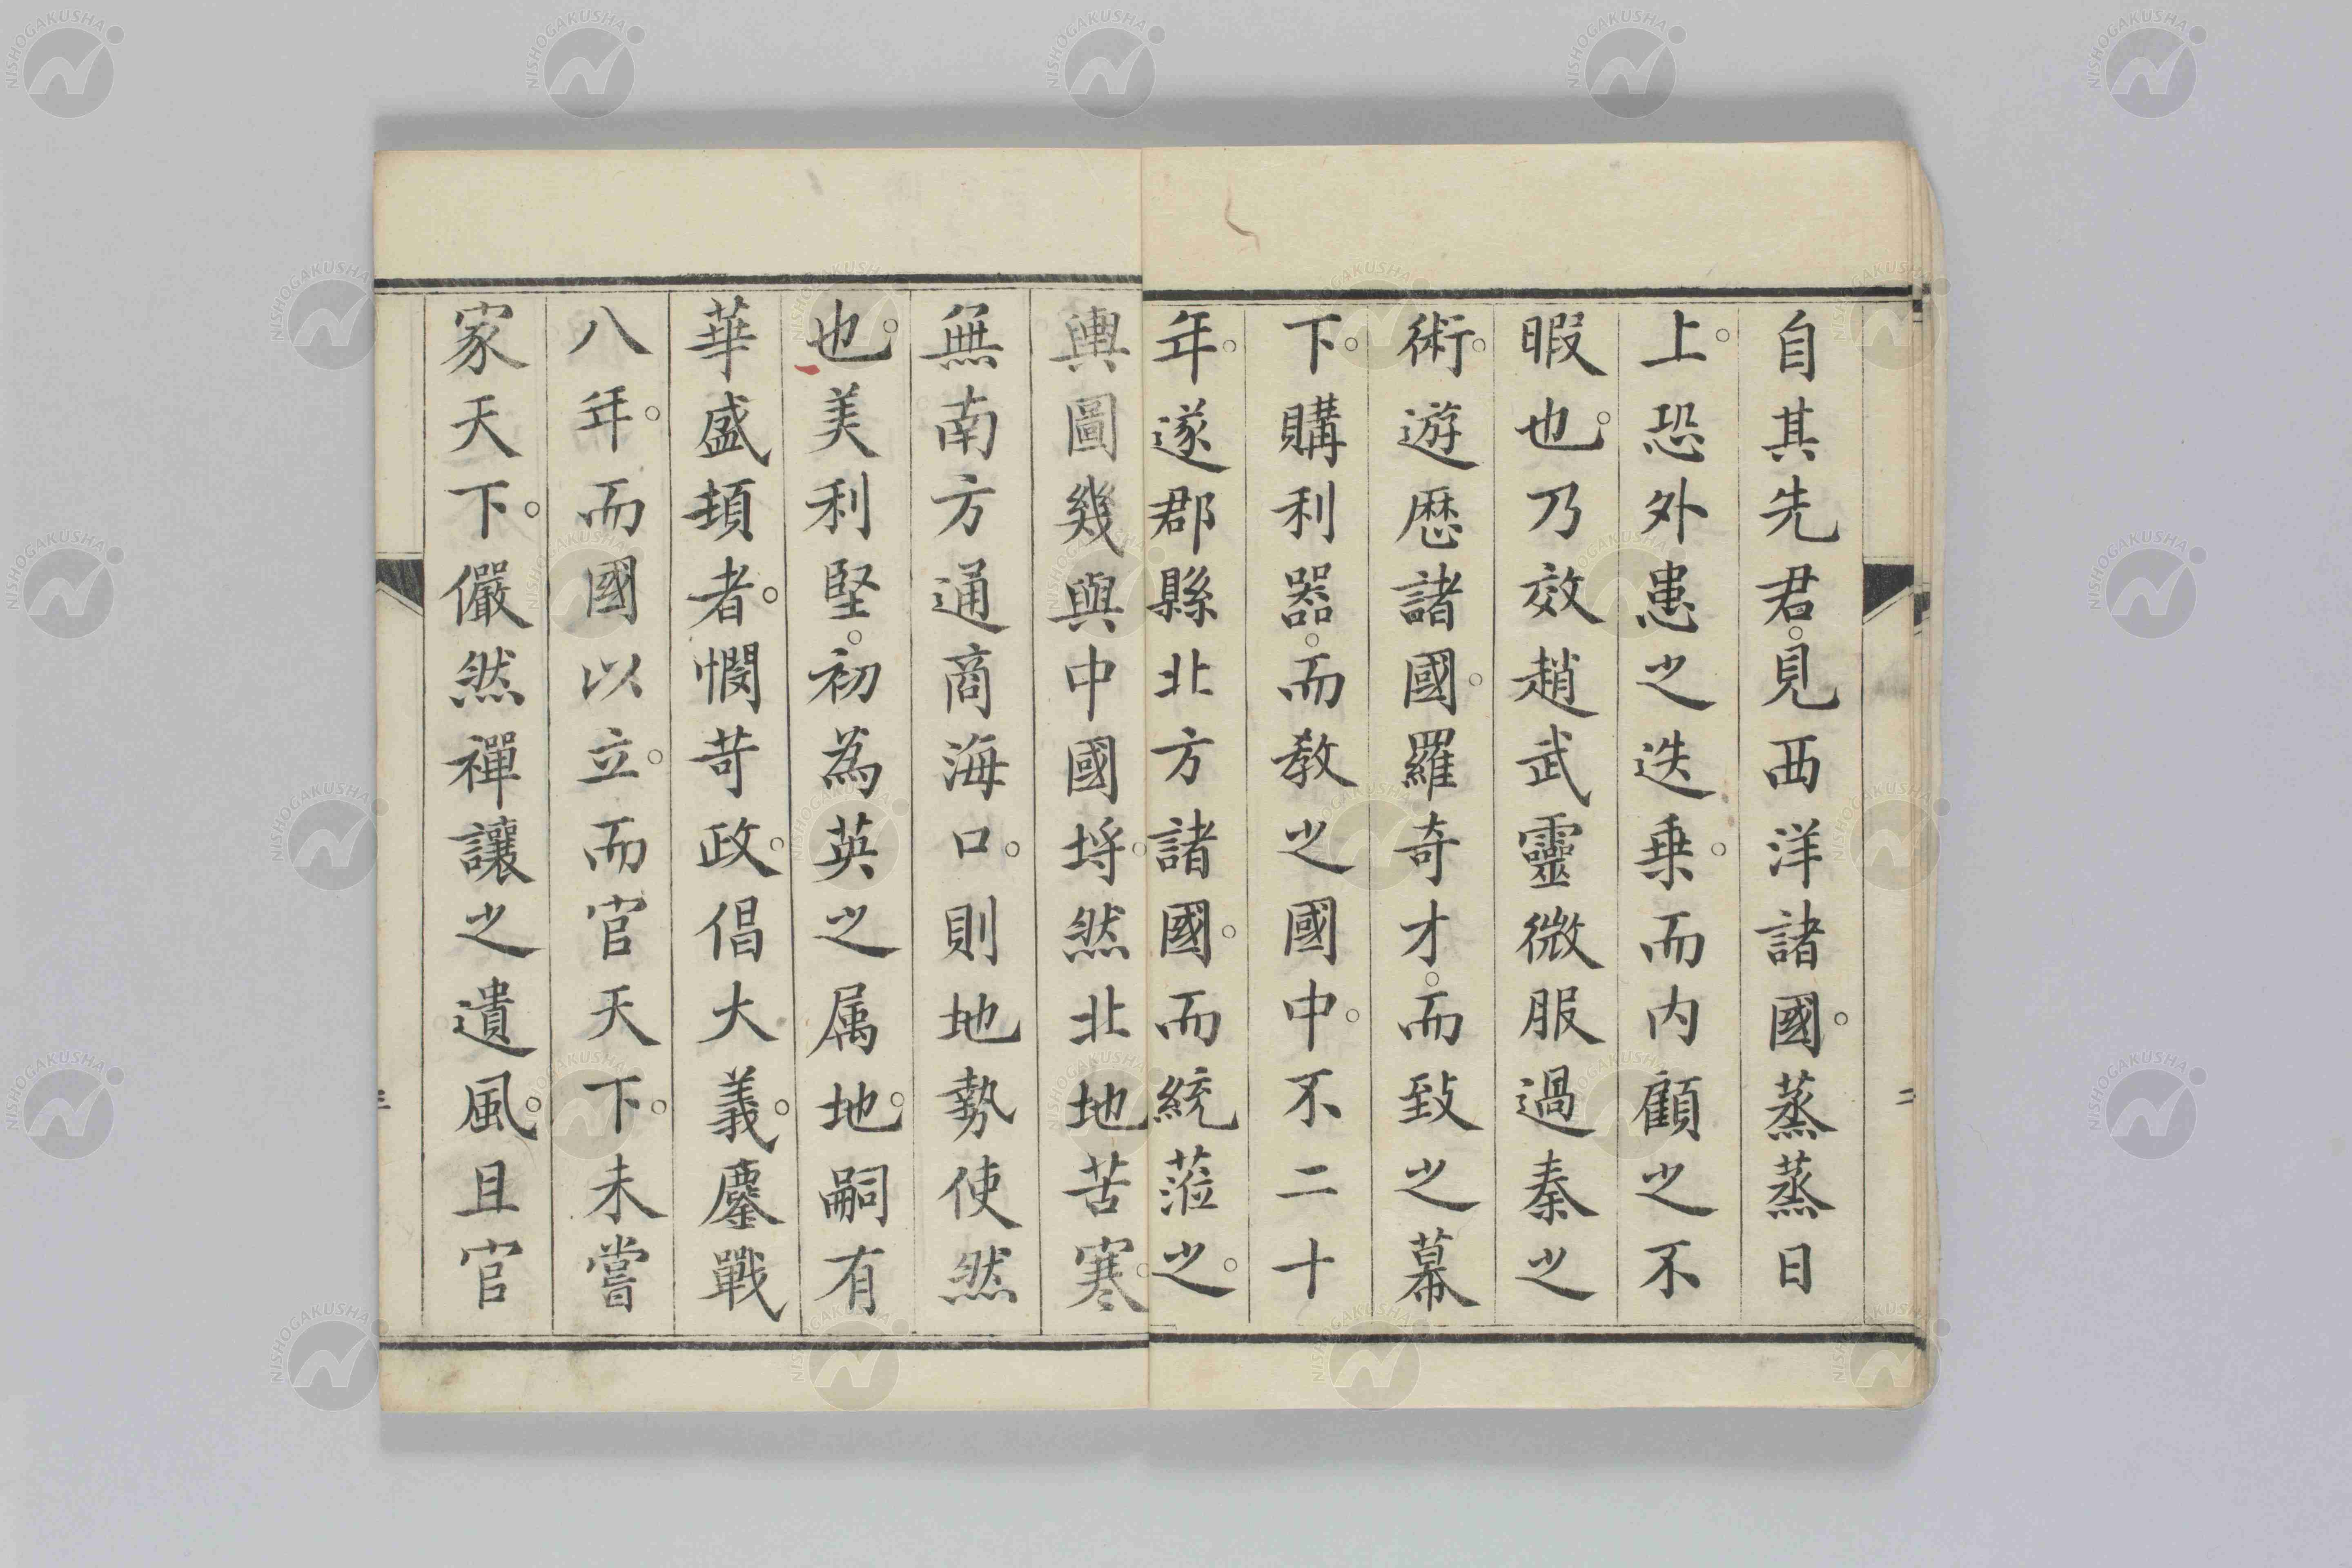 自其先君。見西洋諸國。蒸蒸日
上。恐外患之迭乗。而内顧之不
暇也。乃效趙武靈微服過秦之
術。遊歴諸國。羅奇才。而致之幕
下。購利器。而教之國中。不二十
年。遂郡縣北方諸國。而統蒞之。
輿圖幾與中國埓。然北地苦寒。
無南方通商海口。則地勢使然
也。美利堅。初為英之属地。嗣有
華盛頓者。憫苛政。倡大義。鏖戰
八年。而國以立。而官天下。未嘗
家天下。儼然禪讓之遺風。且官
二
三
NISHOGAKUSHA